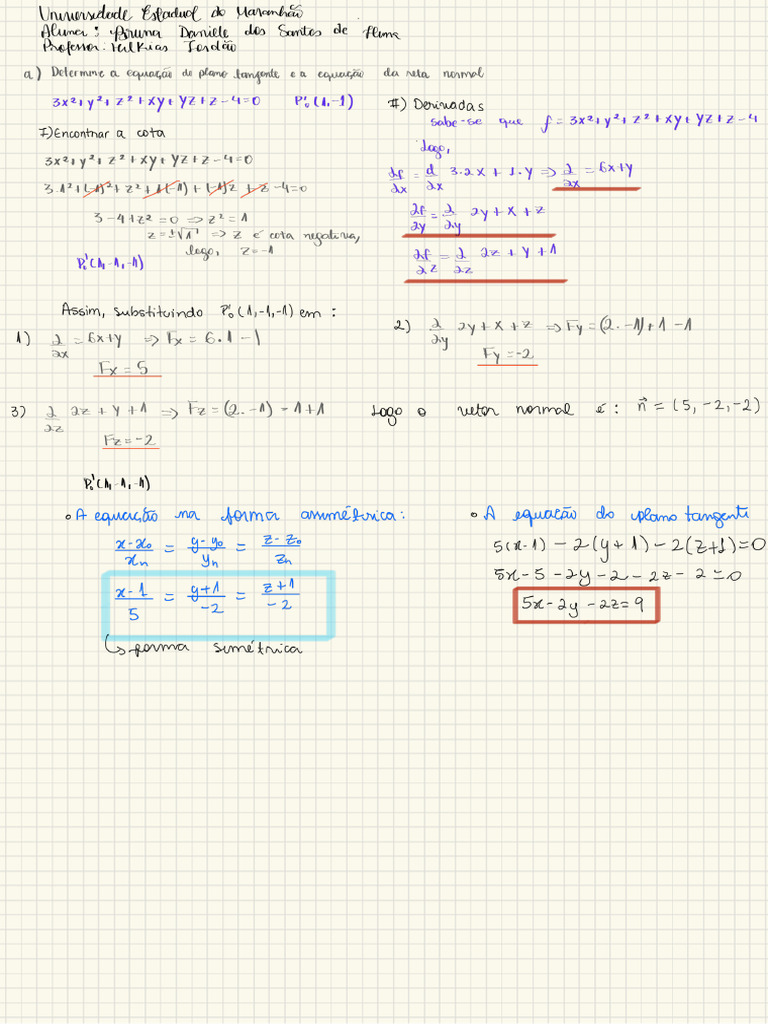 Universidade Estadual do Maranhão
Aluna: Bruna Daniele dos Santos de Lima
Professor: Helkias Jordão
a) Determine a equação do plano tangente e a equação da reta normal
3x²+y²+z²+xy+yz+z-4=0 P'₀(1,-1)
I) Encontrar a cota
3x²+y²+z²+xy+yz+z-4=0
3.1²+(-1)²+z²+1(-1)+(-1)z+z-4=0
3-4+z²=0 ⇒ z²=1
z=±√1 ⇒ z é cota negativa,
logo, z=-1
P'₀(1,-1,-1)
II) Derivadas
sabe-se que f=3x²+y²+z²+xy+yz+z-4
Logo,
∂f/∂x = ∂/∂x 3.2x+1.y ⇒ ∂/∂x = 6x+y
∂f/∂y = ∂/∂y 2y+x+z
∂f/∂z = ∂/∂z 2z+y+1
Assim, substituindo P'₀(1,-1,-1) em:
1) ∂/∂x = 6x+y ⇒ Fx=6.1-1
Fx=5
2) ∂/∂y 2y+x+z ⇒ Fy=(2.-1)+1-1
Fy=-2
3) ∂/∂z 2z+y+1 ⇒ Fz=(2.-1)-1+1
Fz=-2
Logo o vetor normal é: n⃗=(5,-2,-2)
P'₀(1,-1,-1)
• A equação na forma assimétrica:
x-x₀/xn = y-y₀/yn = z-z₀/zn
x-1/5 = y+1/-2 = z+1/-2
↳ forma simétrica
• A equação do plano tangente
5(x-1)-2(y+1)-2(z+1)=0
5x-5-2y-2-2z-2=0
5x-2y-2z=9